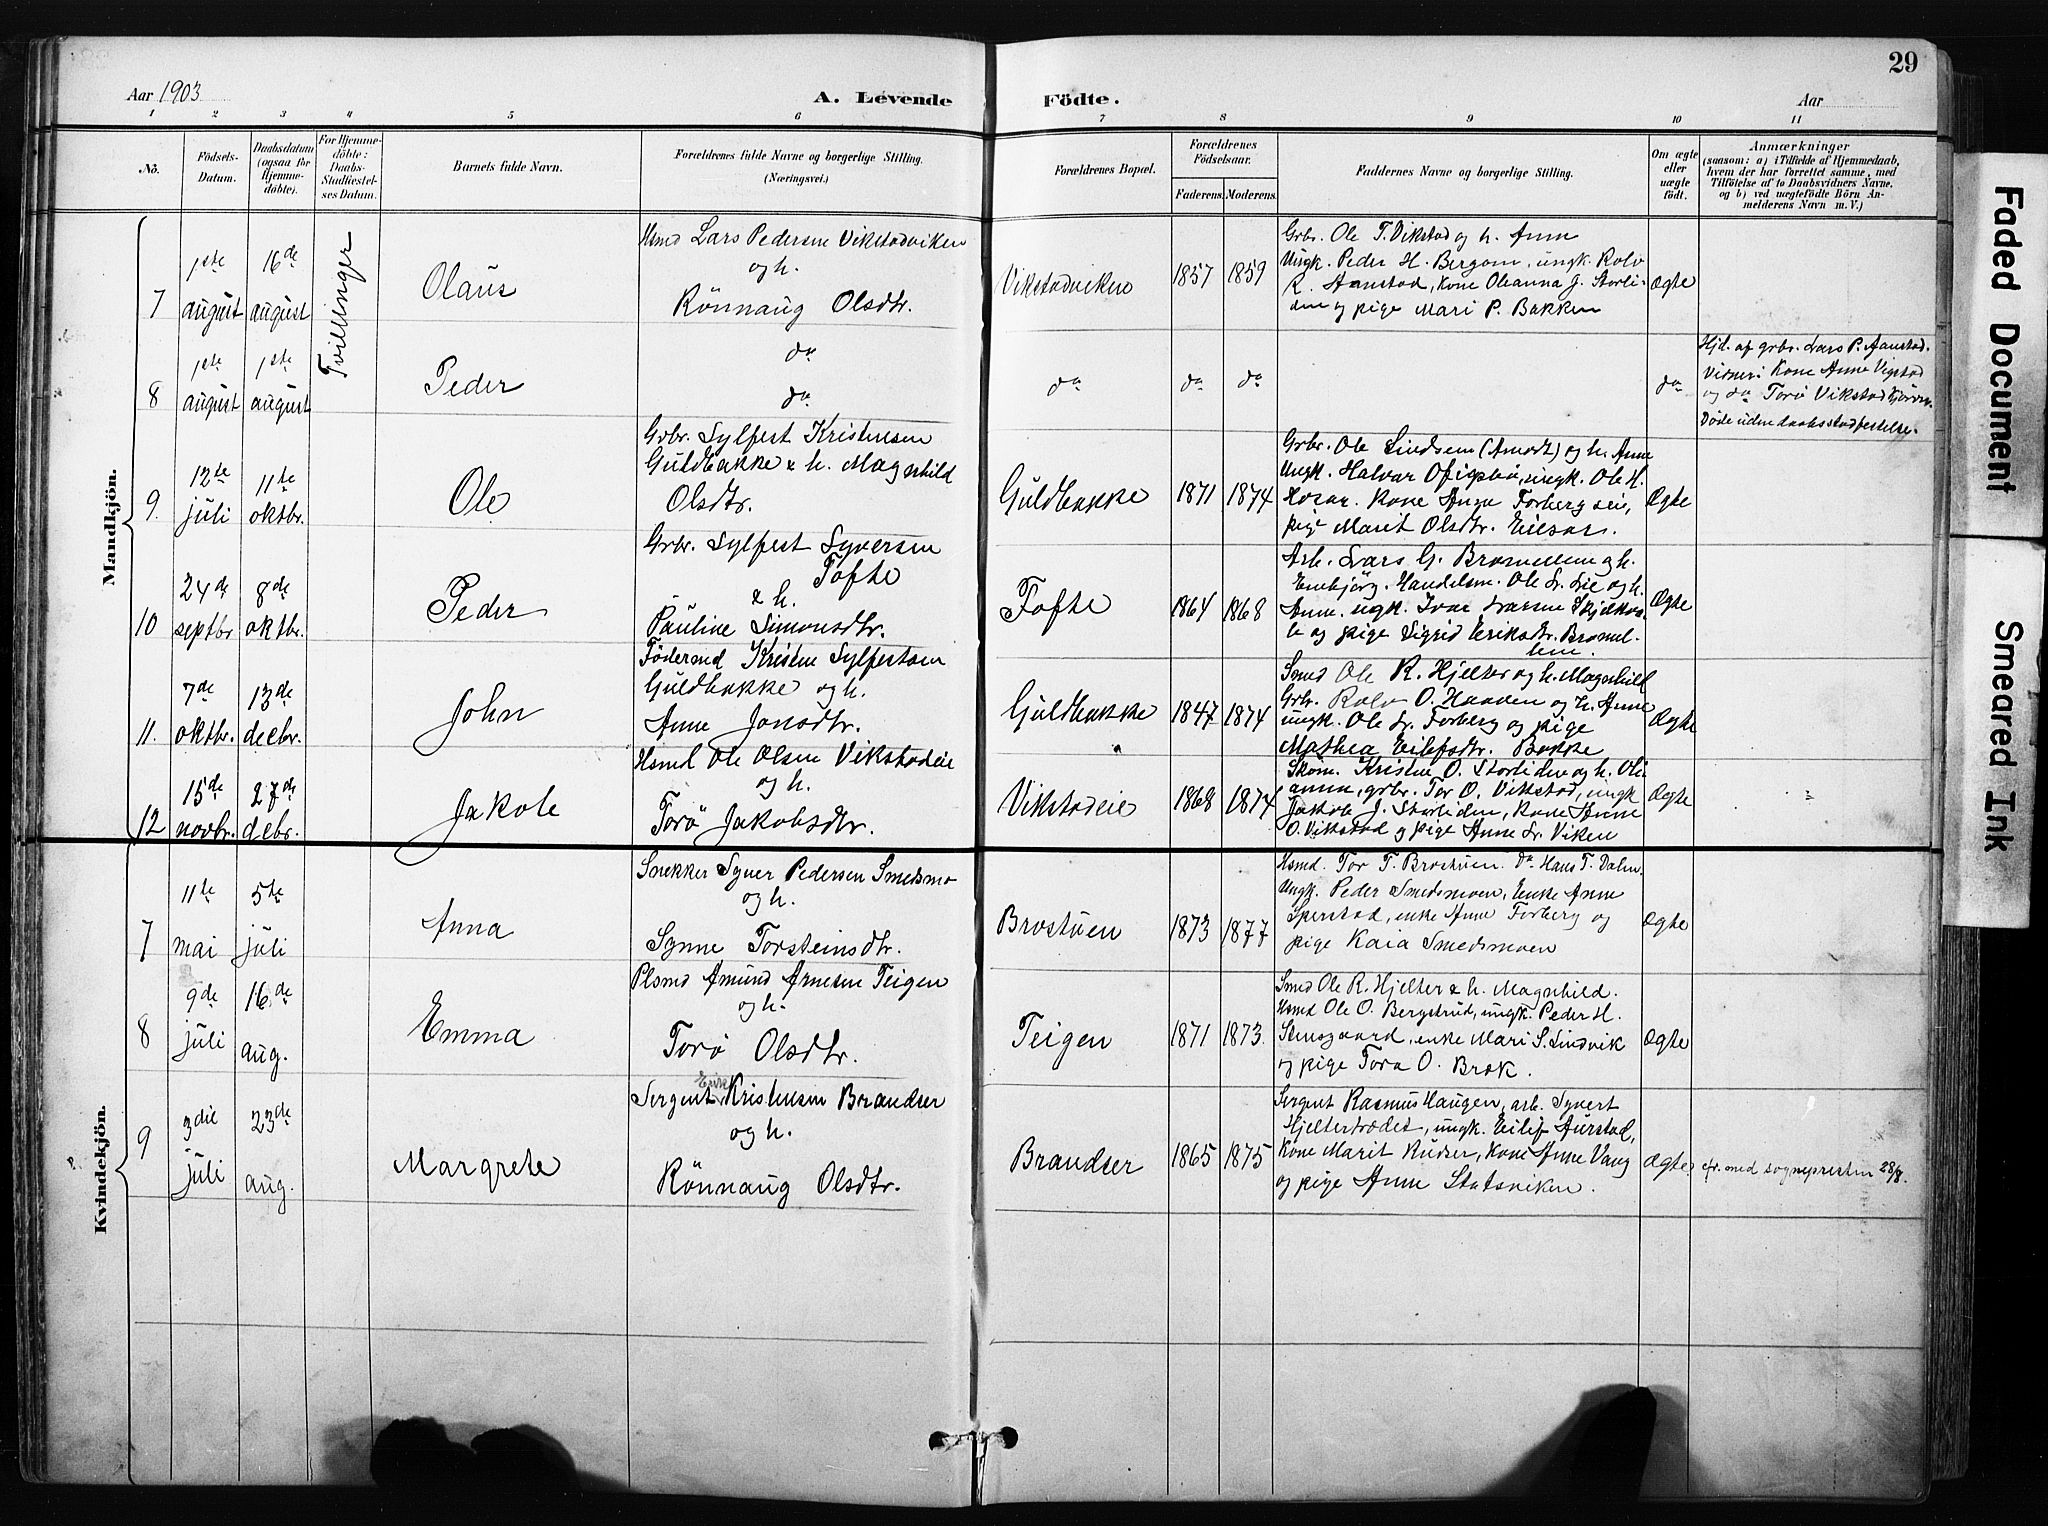 29
Aar 1903
A. Levende Födte.
Aar
1 2 3 4 5 6 7 8 9 10 11
No.
Födsels-Datum.
Daabsdatum (ogsaa for Hjemmedöbte).
For Hjemmedöbte: Daabs-Stadfæstelses Datum.
Barnets fulde Navn.
Forældrenes fulde Navne og borgerlige Stilling. (Næringsvei.)
Forældrenes Bopæl.
Forældrenes Födselsaar.
Faderens. Moderens.
Faddernes Navne og borgerlige Stilling.
Om ægte eller uægte födt.
Anmærkninger
(saasom: a) i Tilfælde af Hjemmedaab,
hvem der har forrettet samme, med
Tilföielse af to Daabsvidners Navne,
og b) ved uægtefödte Börn Anmelderens Navn m. V.)
Mandkjön.
Tvillinger
7
1ste august
16de august
Olaus
Hsmd Lars Pedersen Vikstadviken
og h.
Rönnaug Olsdtr.
Vikstadviken
1857 1859
Grbr. Ole T. Vikstad og h. Anne
Ungk. Peder H. Bergom, ungk. Rolv
R. Aanstad, Kone Oleanna J. Storli-
den og pige Mari P. Bakken
Ægte
8
1ste august
1ste august
Peder
do
do
do
do do
do
Hjd. af grbr. Lars P. Aanstad.
Vidner: Kone Anne Vigstad
og do Torø Vikstad
Døde uden daabsstadfestelse.
9.
12te juli
11te oktbr.
Ole
Grbr. Sylfest Kristensen
Guldbakke & h. Magnhild
Olsdtr.
Guldbakke
1871 1874
Grbr. Ole Lindsem (Amodt) og h. Anne
Ungk. Halvar Ofigsbø, ungk. Ole H.
Kosar. Kone Anne Forberg eie,
pige Marit Olsdtr.
Ægte
10
24de septbr.
8de oktbr.
Peder
Grbr. Sylfest Syversen
Tofte
& h.
Pauline Simonsdtr.
Tofte
1864 1868
Arb. Lars G. Bromellem og h.
Embjörg. Handelsm. Ole L. Lie og h.
Anne. ungk. Ivar Larsen
og pige Sigrid Eriksdtr. Bromel-
lem.
Ægte
11.
7de oktbr.
13de decbr.
John
Föderaad Kristen Sylfestsen
Guldbakke og h.
Anne Jonsdtr.
Guldbakke
1847 1874
Smed Ole R. Hjelter og h. Magnhild
Grbr. Rolv O. Haaden og h. Anne
ungk. Ole L. Forberg og pige
Mathea Eilefsdtr. Bakke
Ægte
12
15de novbr.
27de decbr.
Jakob
Hsmd Ole Olsen Vikstadeie
og h.
Torø Jakobsdtr.
Vikstadeie
1868 1874
Skom. Kristen O. Storliden og h. Oli-
anna, grbr. Tor O. Vikstad, ungk
Jakob J. Storliden, Kone Anne
O. Vikstad og pige Anne L. Viken
Ægte
Kvindekjön.
7
11te mai
5te juli
Anna
Snekker Syver Pedersen Smedsmo
og h.
Synne Torsteinsdtr.
Brostuen
1873 1877
Hsmd. Tor T. Brostuen. Do Hans T. Dalen.
Ungk. Peder Smedsmoen, Enke Anne
Sperstad, enke Anne Forberg og
pige Kaia Smedsmoen
Ægte
8
9de juli
16de aug.
Emma
Plsmd Amund Arnesen Teigen
og h.
Torø Olsdtr.
Teigen
1871 1873.
Smed Ole R. Hjelter & h. Magnhild.
Hsmd Ole O. Bergstrud, ungk. Peder H.
Stensgaard, enke Mari S. Lindvik
og pige Tora O. Brok.
Ægte
9
3die juli
23de aug.
Margrete
Sergent Erik Kristensen Brandser
og h.
Rönnaug Olsdtr.
Brandser
1865 1875
Sergent Rasmus Haugen, arb. Syvert
Hjeltertrædet, ungk. Eilif Aurstad,
Kone Marit Ruder, Kone Anne Vang
og pige Anne Statsviken.
Ægte
cfr. med sognepresten 28/8.
Faded Document
Smeared Ink